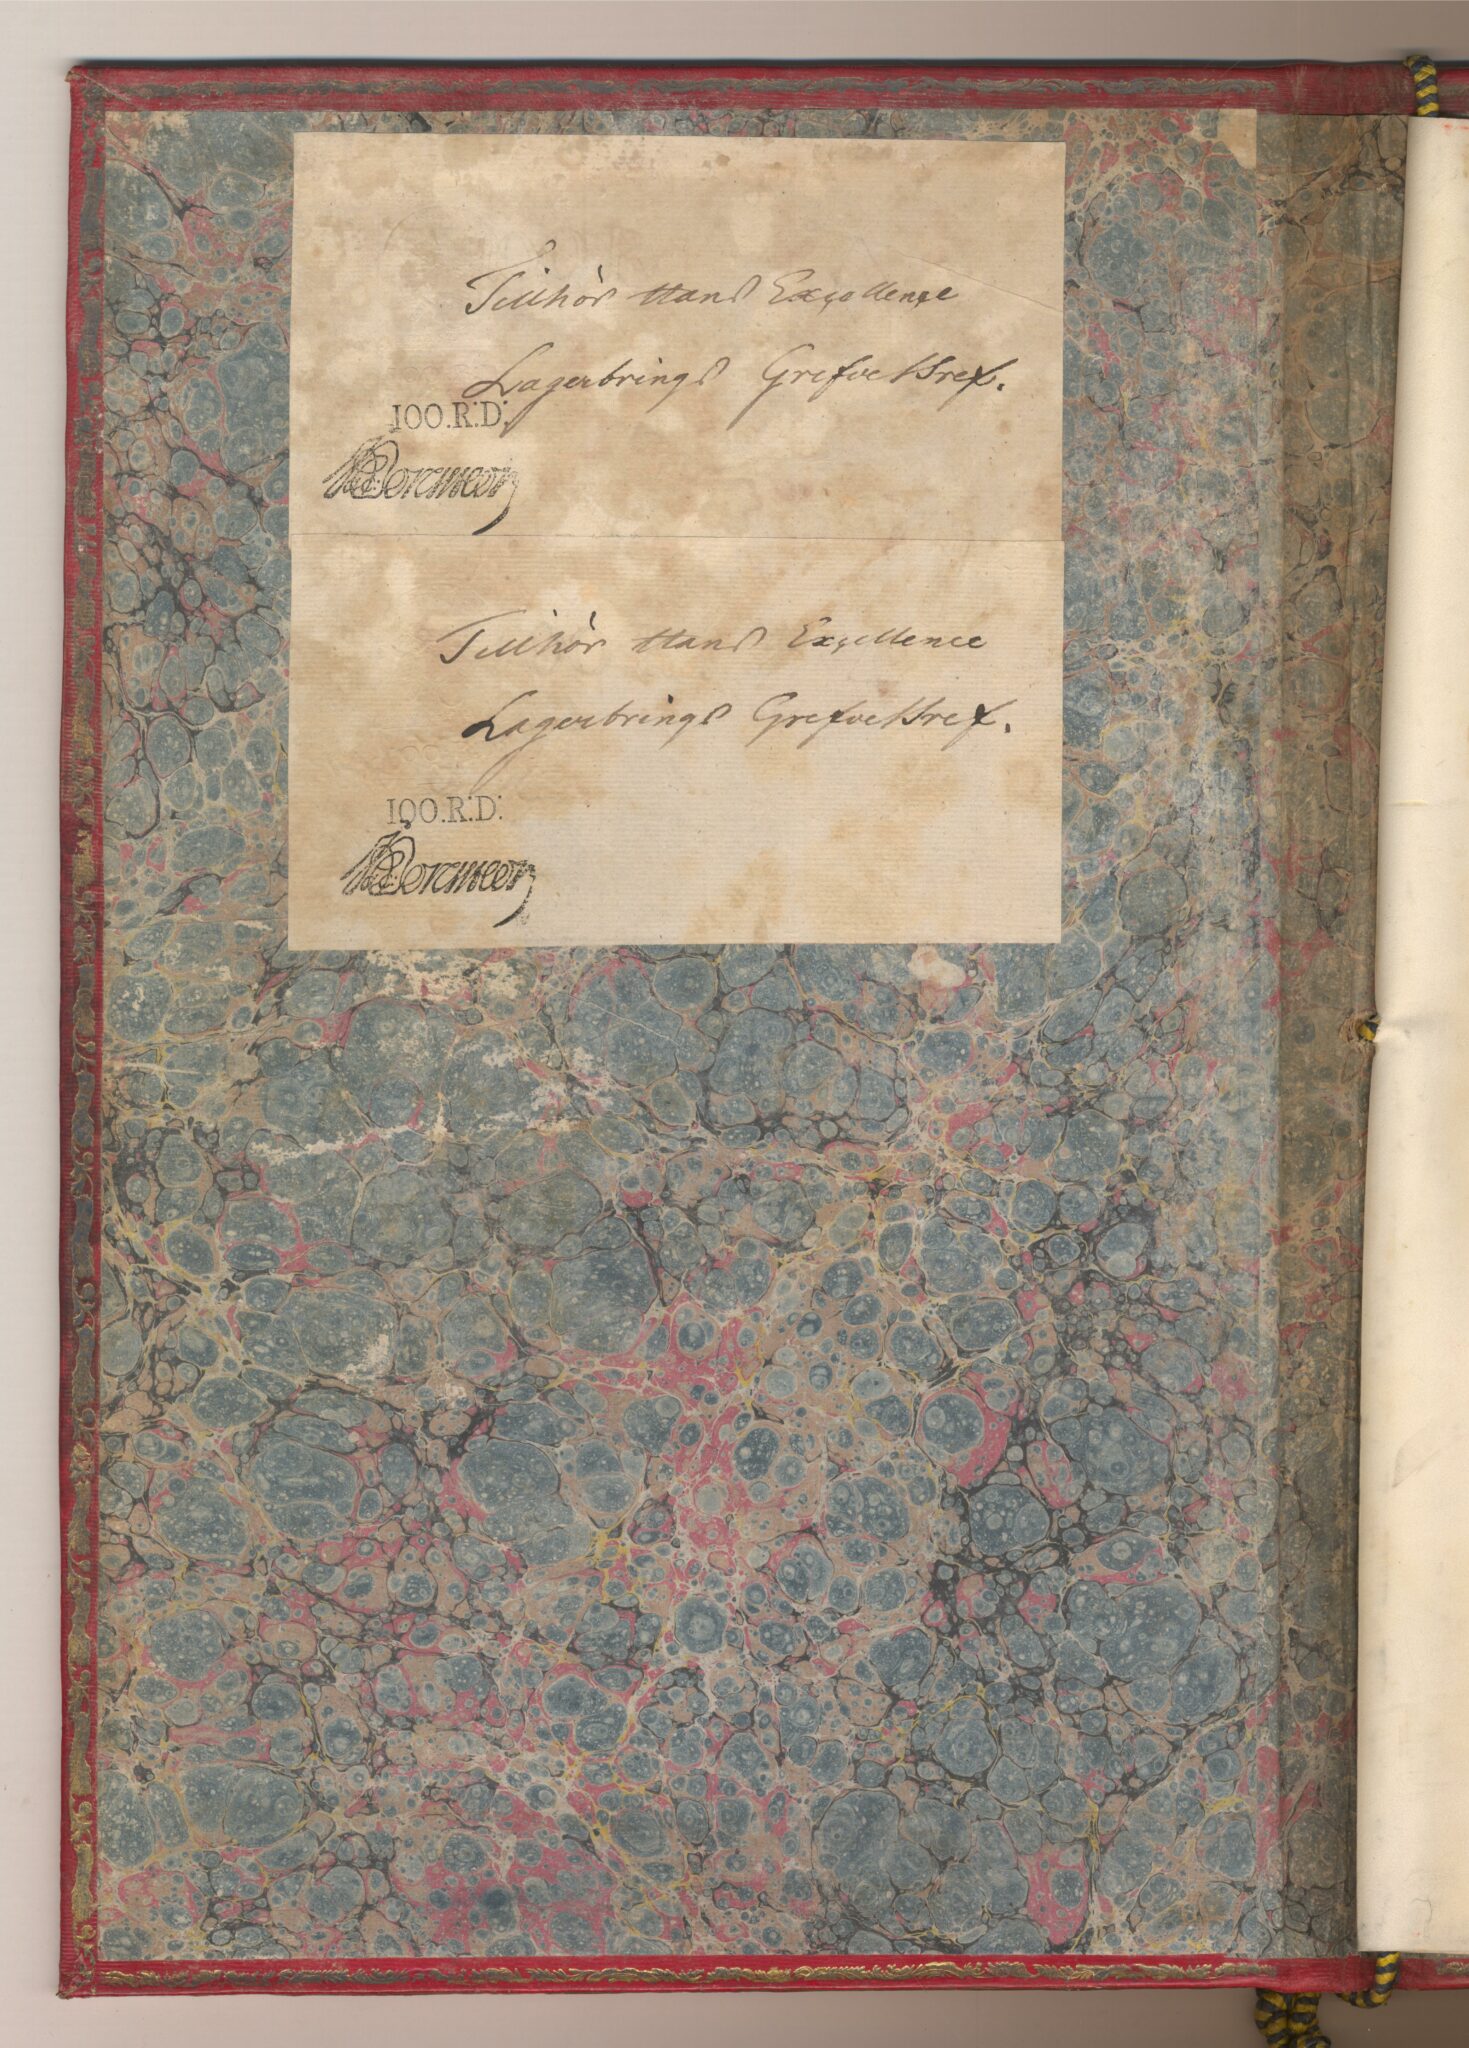 Tillhör Hans Excellence
Lagerbrings Grefve Bref.
100.R:D:
Tillhör Hans Excellence
Lagerbrings Grefve Bref.
100.R:D: